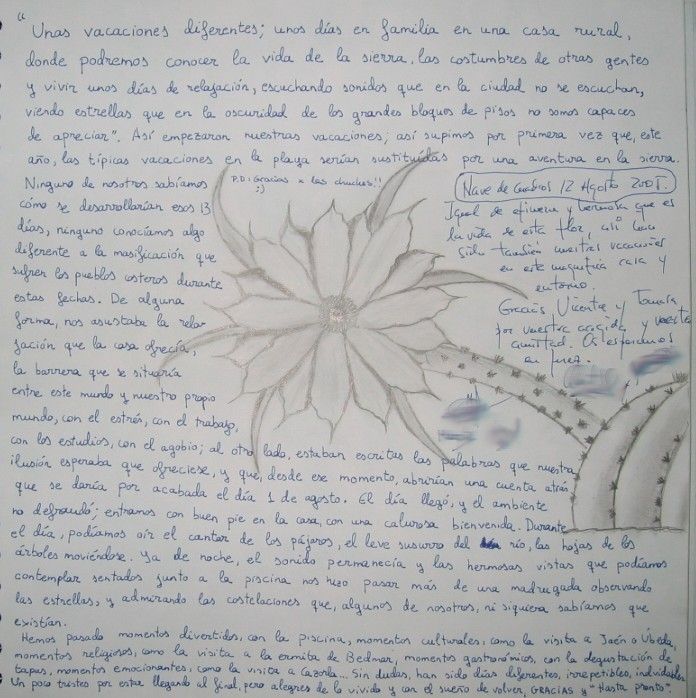 "Unas vacaciones diferentes; unos días en familia en una casa rural,
donde podremos conocer la vida de la sierra, las costumbres de otras gentes
y vivir unos días de relajación, escuchando sonidos que en la ciudad no se escuchan,
viendo estrellas que en la oscuridad de los grandes bloques de pisos no somos capaces
de apreciar". Así empezaron nuestras vacaciones; así supimos por primera vez que, este
año, las típicas vacaciones en la playa serían sustituídas por una aventura en la sierra.
Ninguno de nosotros sabíamos
cómo se desarrollarían esos 13
días, ninguno conocíamos algo
diferente a la masificación que
sufren los pueblos costeros durante
estas fechas. De alguna
forma, nos asustaba la rela-
jación que la casa ofrecía,
la barrera que se situaría
entre este mundo y nuestro propio
mundo, con el estrés, con el trabajo,
con los estudios, con el agobio; al otro lado, estaban escritas las palabras que nuestra
ilusión esperaba que ofreciese, y que, desde ese momento, abrirían una cuenta atrás
que se daría por acabada el día 1 de agosto. El día llegó, y el ambiente
no defraudó; entramos con buen pie en la casa, con una calurosa bienvenida. Durante
el día, podíamos oír el cantar de los pájaros, el leve susurro del río, las hojas de los
árboles moviéndose. Ya de noche, el sonido permanecía y las hermosas vistas que podíamos
contemplar sentados junto a la piscina nos hizo pasar más de una madrugada observando
las estrellas, y admirando las costelaciones que, algunos de nosotros, ni siquiera sabíamos que
existían.
Hemos pasado momentos divertidos, con la piscina, momentos culturales, como la visita a Jaén o Úbeda,
momentos religiosos, como la visita a la ermita de Bedmar, momentos gastronómicos, con la degustación de
tapas, momentos emocionantes, como la visita a Cazorla... Sin dudas, han sido días diferentes, irrepetibles, inolvidables.
Un poco tristes por estar llegando al final, pero alegres de lo vivido y con el sueño de volver, GRACIAS y "Hasta pronto".
P.D: Gracias x las chuches!!
:)
12 Agosto
Igual de efímera y hermosa que es
la vida de esta flor, así han
sido también nuestras vacaciones
en esta magnífica casa y
entorno.
Gracias Vicente y
por vuestra acogida y vuestra
amistad. Os esperamos
en